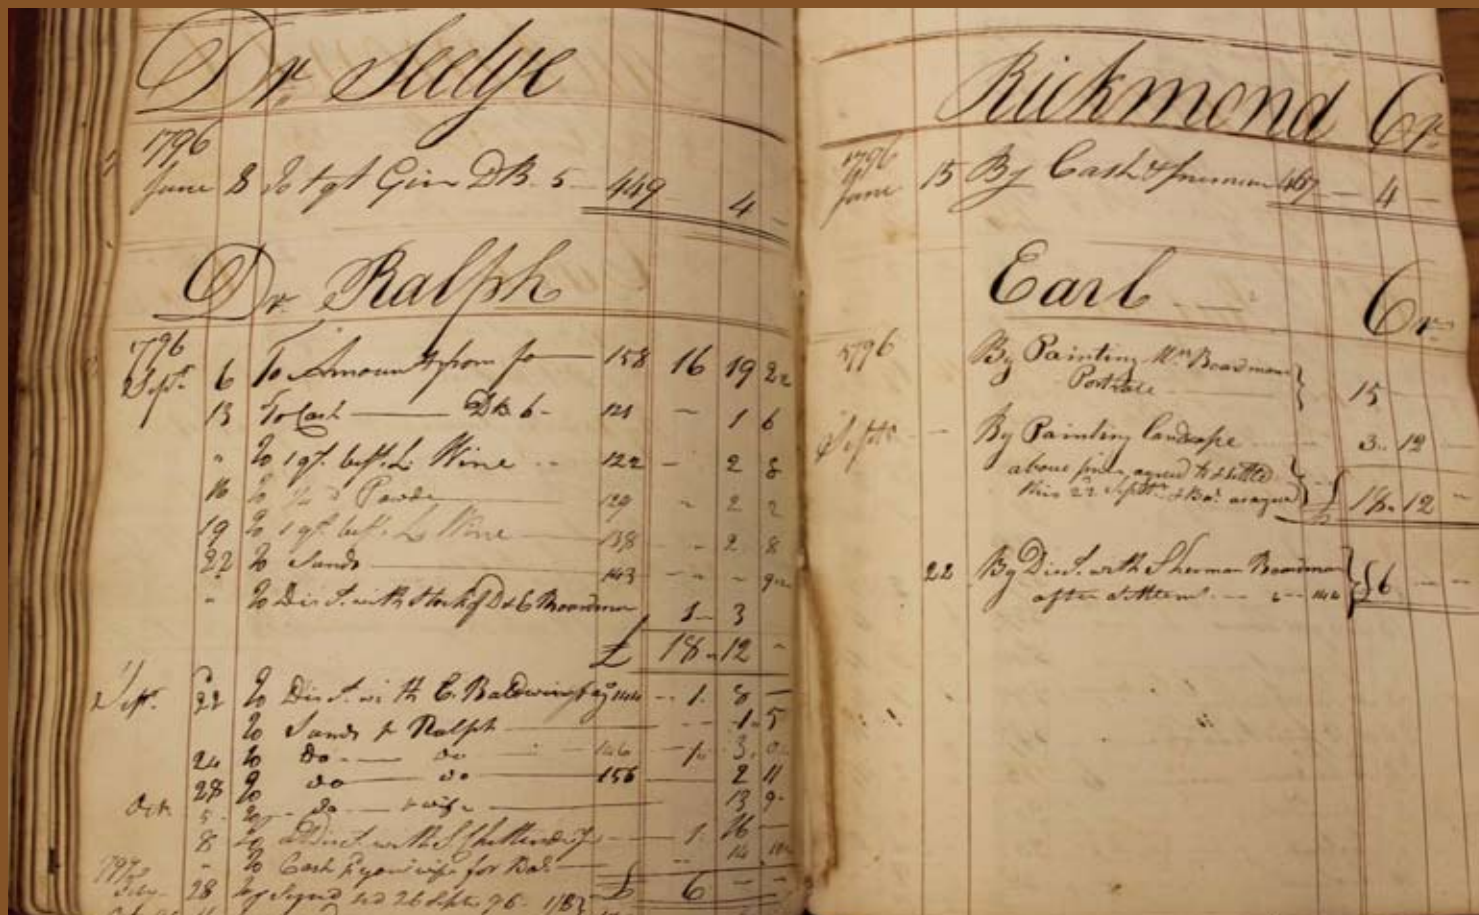 Dr. Seelye
1796
June 8 To 1 qt Gin DB. 5 449 4
Dr. Ralph
1796
Sept. 6 To Amount from fo 158 16 19 2
13 To Cash DB. 6 121 1 6
" To 1 qt. best L. Wine 122 2 8
16 To 129 2 2
19 To 1 qt. best L Wine 138 2 8
22 To Sands 143 9
" To Disct. with Stock of D & E Boardman 1 3
£ 18 12
Sept. 22 To Disct. with E. Baldwin 144 1. 8
To Sands Ralph 1 5
24 To Do do 146 1. 3. 0
28 To do do 156 2 11
Oct. 5 To do wife 13 9
8 To Disct. with 1. 16
" To Cash your wife for Bal. 14
1797
28 26 Sept. 96 £ 6
Richmond Cr.
1796
June 15 By Cash 467 4
Earl Cr.
1796 By Painting Mrs. Boardman
Portrate 15
Septr. By Painting Landscape 3.. 12
above agreed to & settled
this 22 Septr. £ 18. 12
22 By Disct. with Sherman Boardman
after 144 £6